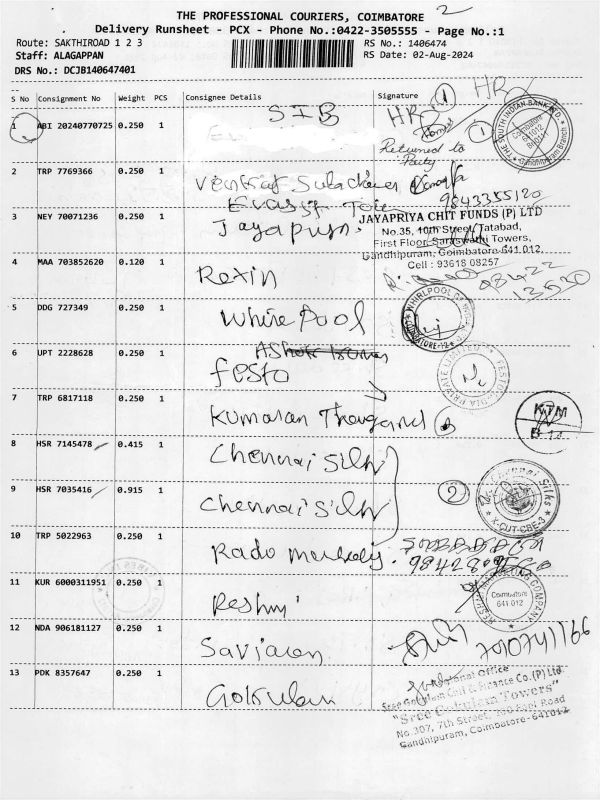 THE PROFESSIONAL COURIERS, COIMBATORE 2
Delivery Runsheet - PCX - Phone No.:0422-3505555 - Page No.:1
Route: SAKTHIROAD 1 2 3
RS No.: 1406474
Staff: ALAGAPPAN
RS Date: 02-Aug-2024
DRS No.: DCJB140647401
S No Consignment No Weight PCS Consignee Details Signature
1 ABI 20240770725 0.250 1 SIB HR 1 HR
Returned to
Party
THE SOUTH INDIAN BANK LTD.
Coimbatore
641012
Gandhipuram Branch
2 TRP 7769366 0.250 1
9843355120
3 NEY 70071236 0.250 1
JAYAPRIYA CHIT FUNDS (P) LTD
No.35, 10th Street, Tatabad,
First Floor, Saraswathi Towers,
Gandhipuram, Coimbatore-641 012.
Cell : 93618 08257
4 MAA 703852620 0.120 1 Rexin
5 DDG 727349 0.250 1 White Pool
6 UPT 2228628 0.250 1 festo
7 TRP 6817118 0.250 1 Kumaran
KTM
8 HSR 7145478 0.415 1 Chennai Silk
9 HSR 7035416 0.915 1 Chennai Silk 2
Chennai Silks
X-CUT-CBE-3
10 TRP 5022963 0.250 1 Rado
11 KUR 6000311951 0.250 1 Reshmi
RESHMI MARKETING COMPANY
Coimbatore
641 012
12 NDA 906181127 0.250 1
13 PDK 8357647 0.250 1 Gokulam
Sree Gokulam Chit & Finance Co.(P) Ltd.
"Sree Gokulam Towers"
No.307, 7th Street,
Gandhipuram, Coimbatore-641012